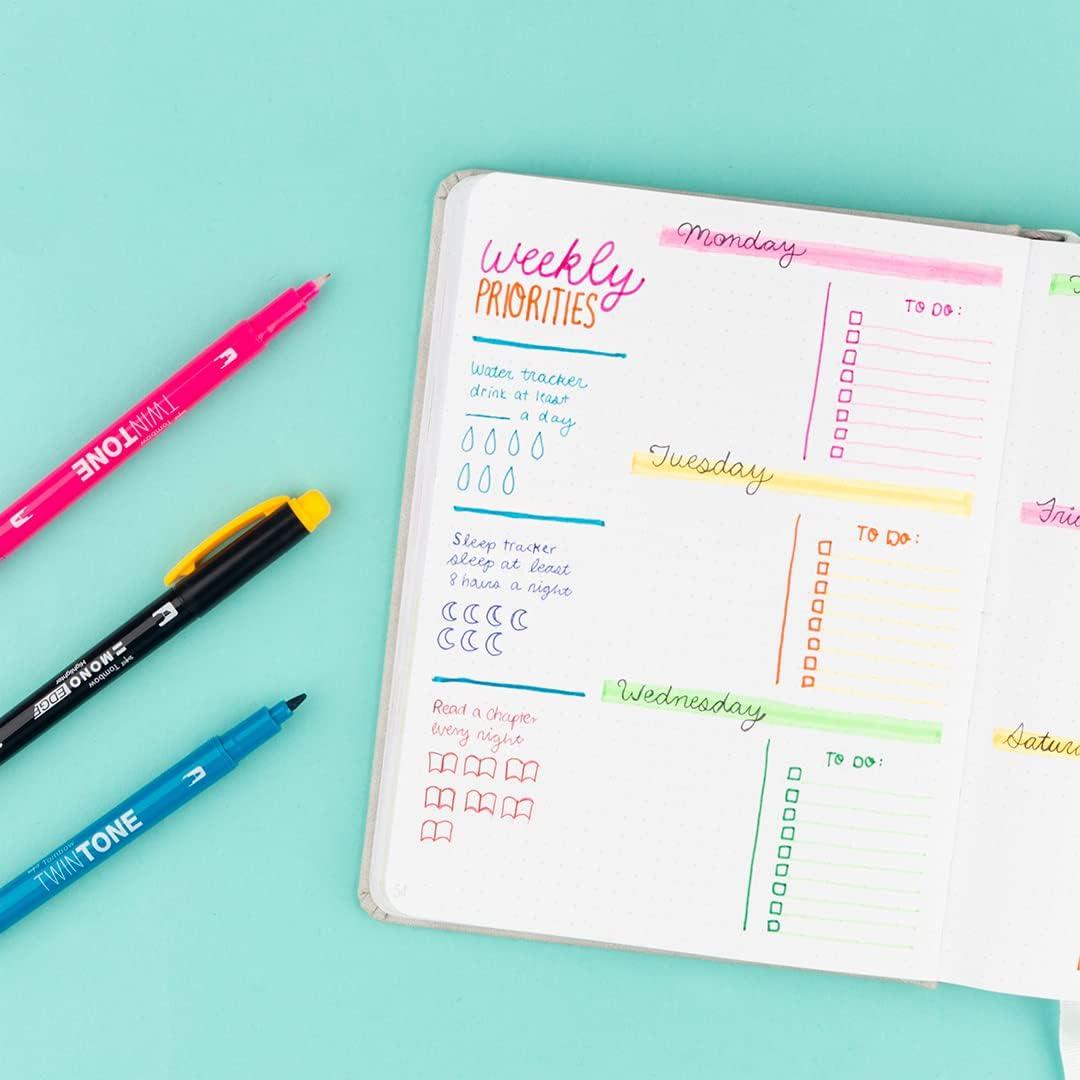 weekly
PRIORITIES
Water tracker
drink at least
____ a day
Sleep tracker
sleep at least
8 hours a night
Read a chapter
every night
Monday
TO DO:
Tuesday
TO DO:
Wednesday
TO DO:
T
Fri
Satur
Tombow
TWINTONE
Tombow
MONO EDGE
Highlighter
Tombow
TWINTONE